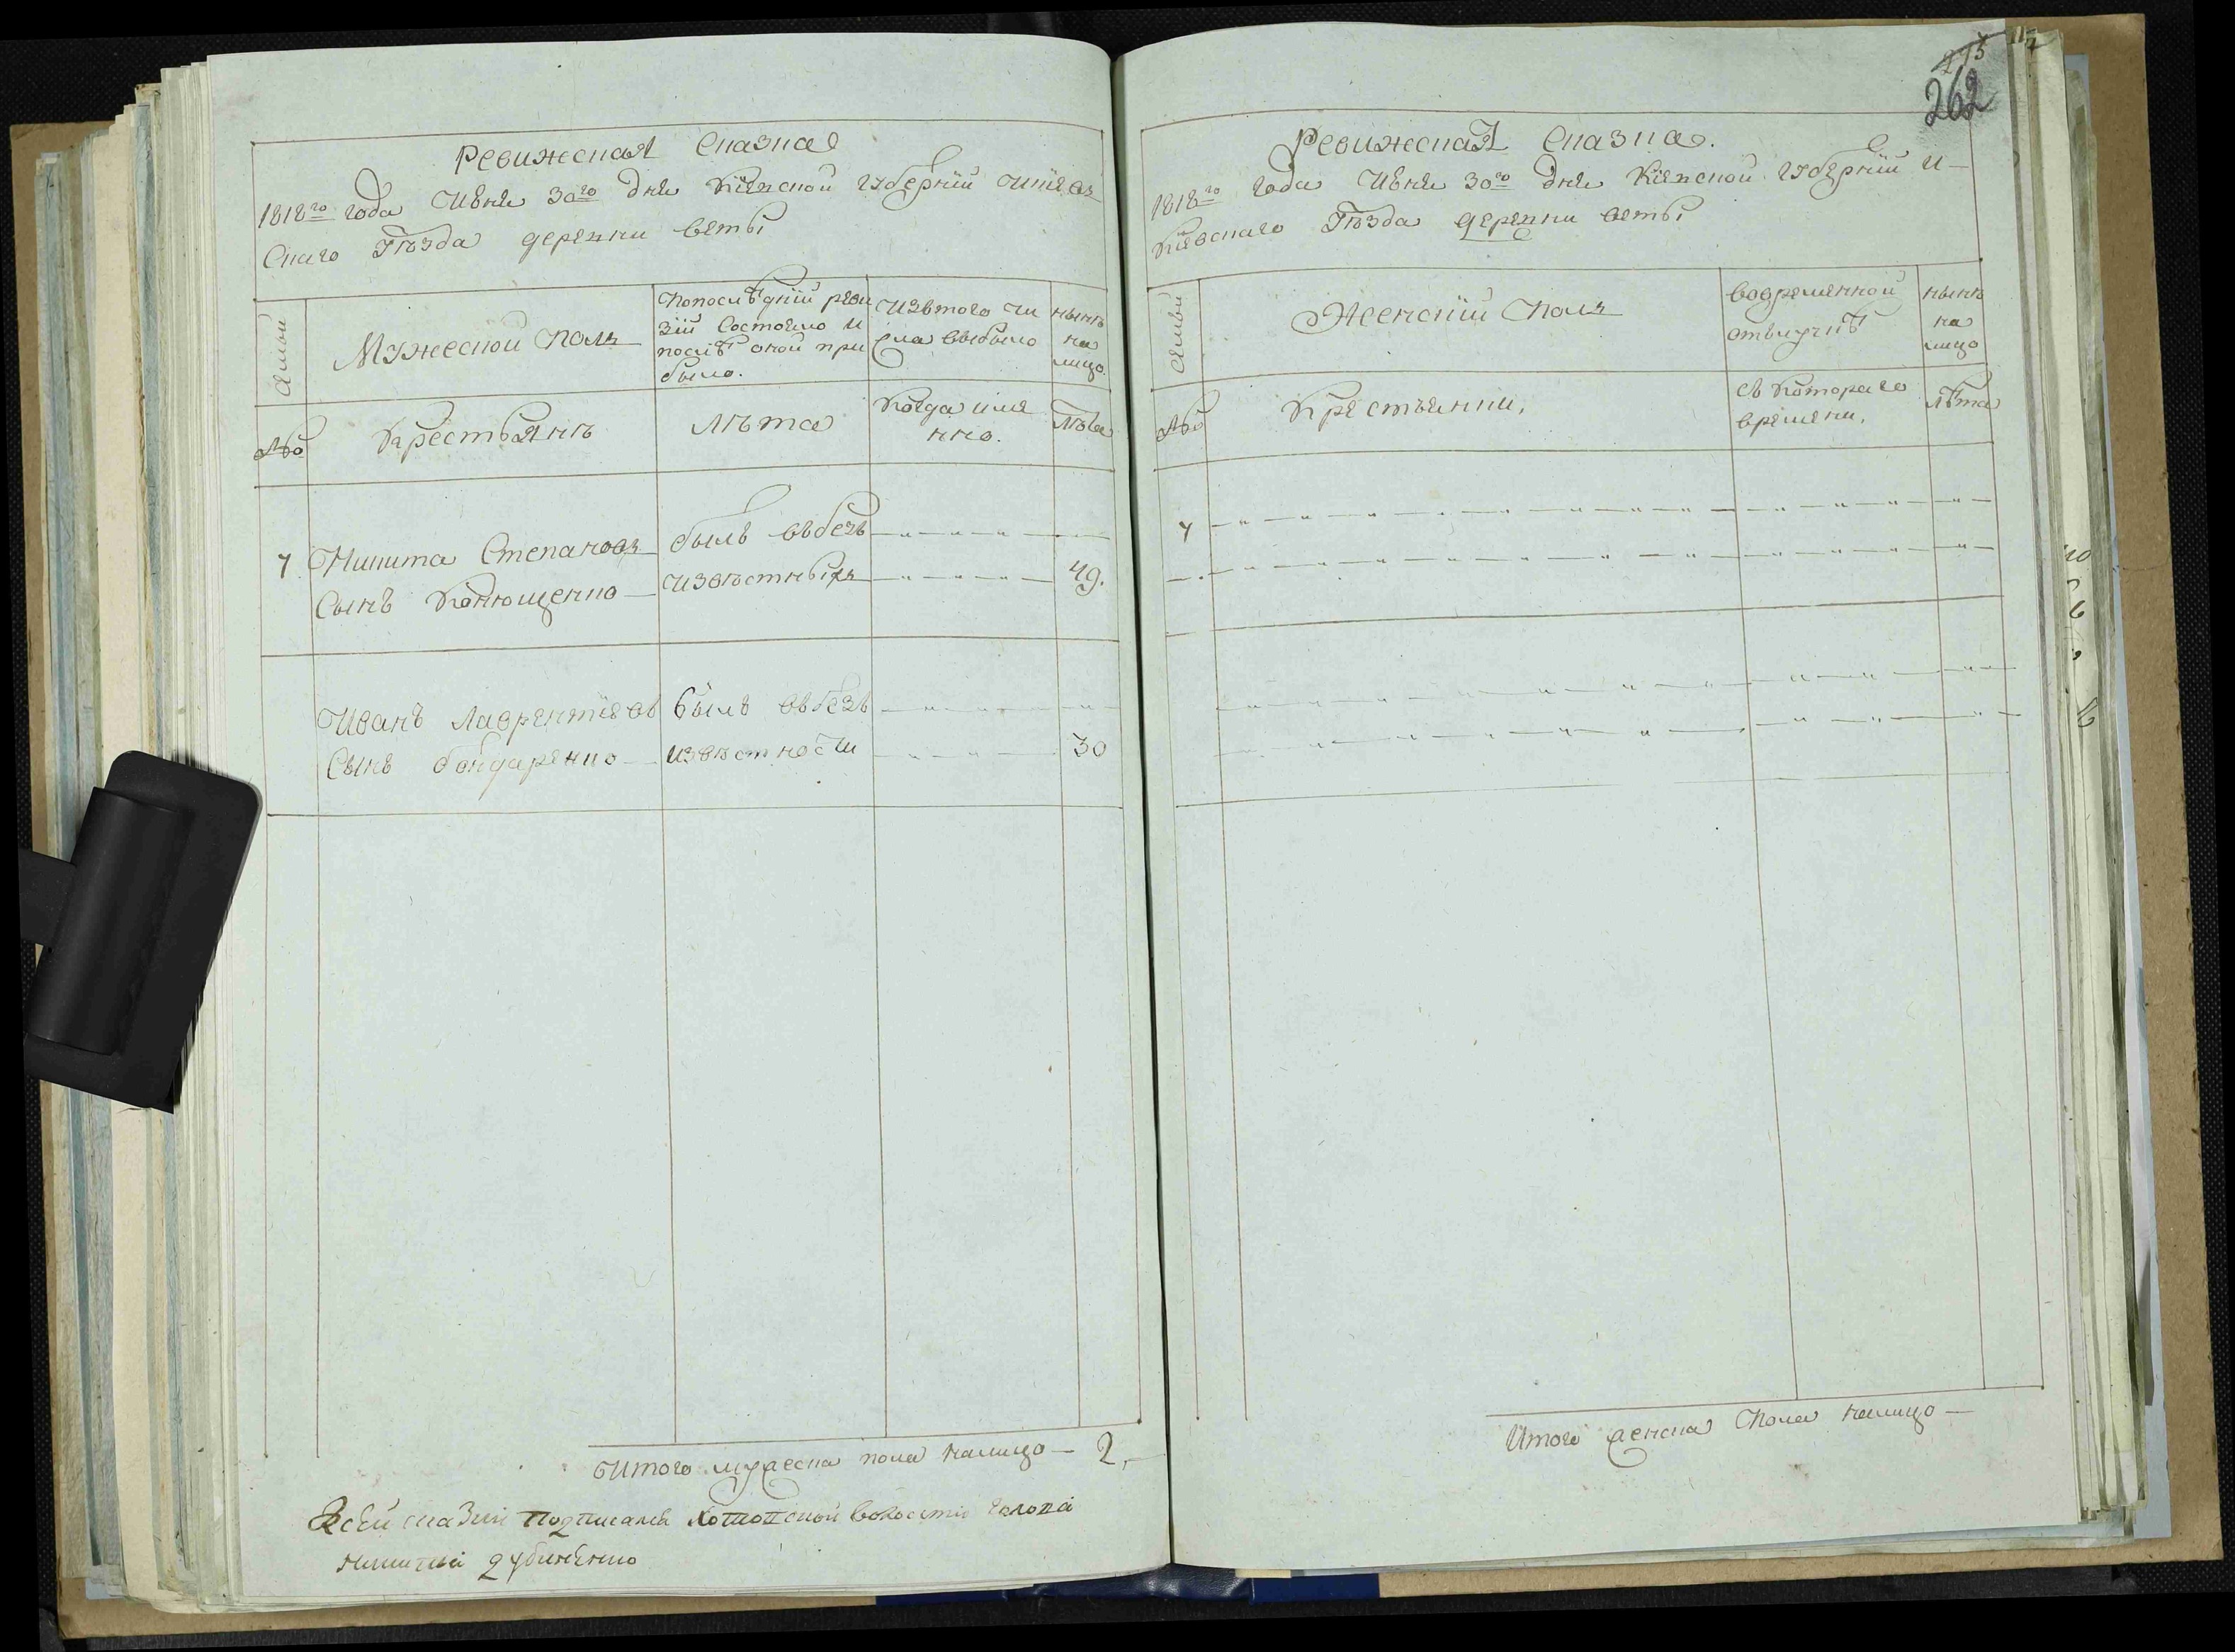 Ревижеская Сказка
1818го года Июня 30го дня Кіевской губерніи Кіев
скаго Уѣзда деревни веты
Семьи
Мужеской полъ
Попослѣдній реви
зіи Состояло и
послѣ оной при
было.
Изътого чи
сла выбыло
нынѣ
на
лицо.
№о
Крестьянѣ
Лѣта
Когда имя
нно.
Лѣта
7. Никита Степановъ
Сынъ Конющенко
былъ въбезъ
извѣстныхъ
49.
Иванъ Лаврентіевъ
Сынъ бондаренко
былъ въбезъ
извѣстности
30
Итого мужеска пола налицо — 2,
Ксей сказки Подписался Хотовской волости голова
Никита дубиненко
275
262
Ревижеская Сказка.
1818го года Июня 30го дня Кіевской губерніи и
Кіевскаго Уѣзда деревни веты
Семьи
Женскій полъ
вовременной
отълучкѣ
нынѣ
на
лицо
№о
Крестьянки,
съ Котораго
времени,
лѣта
7
Итого женска пола налицо —